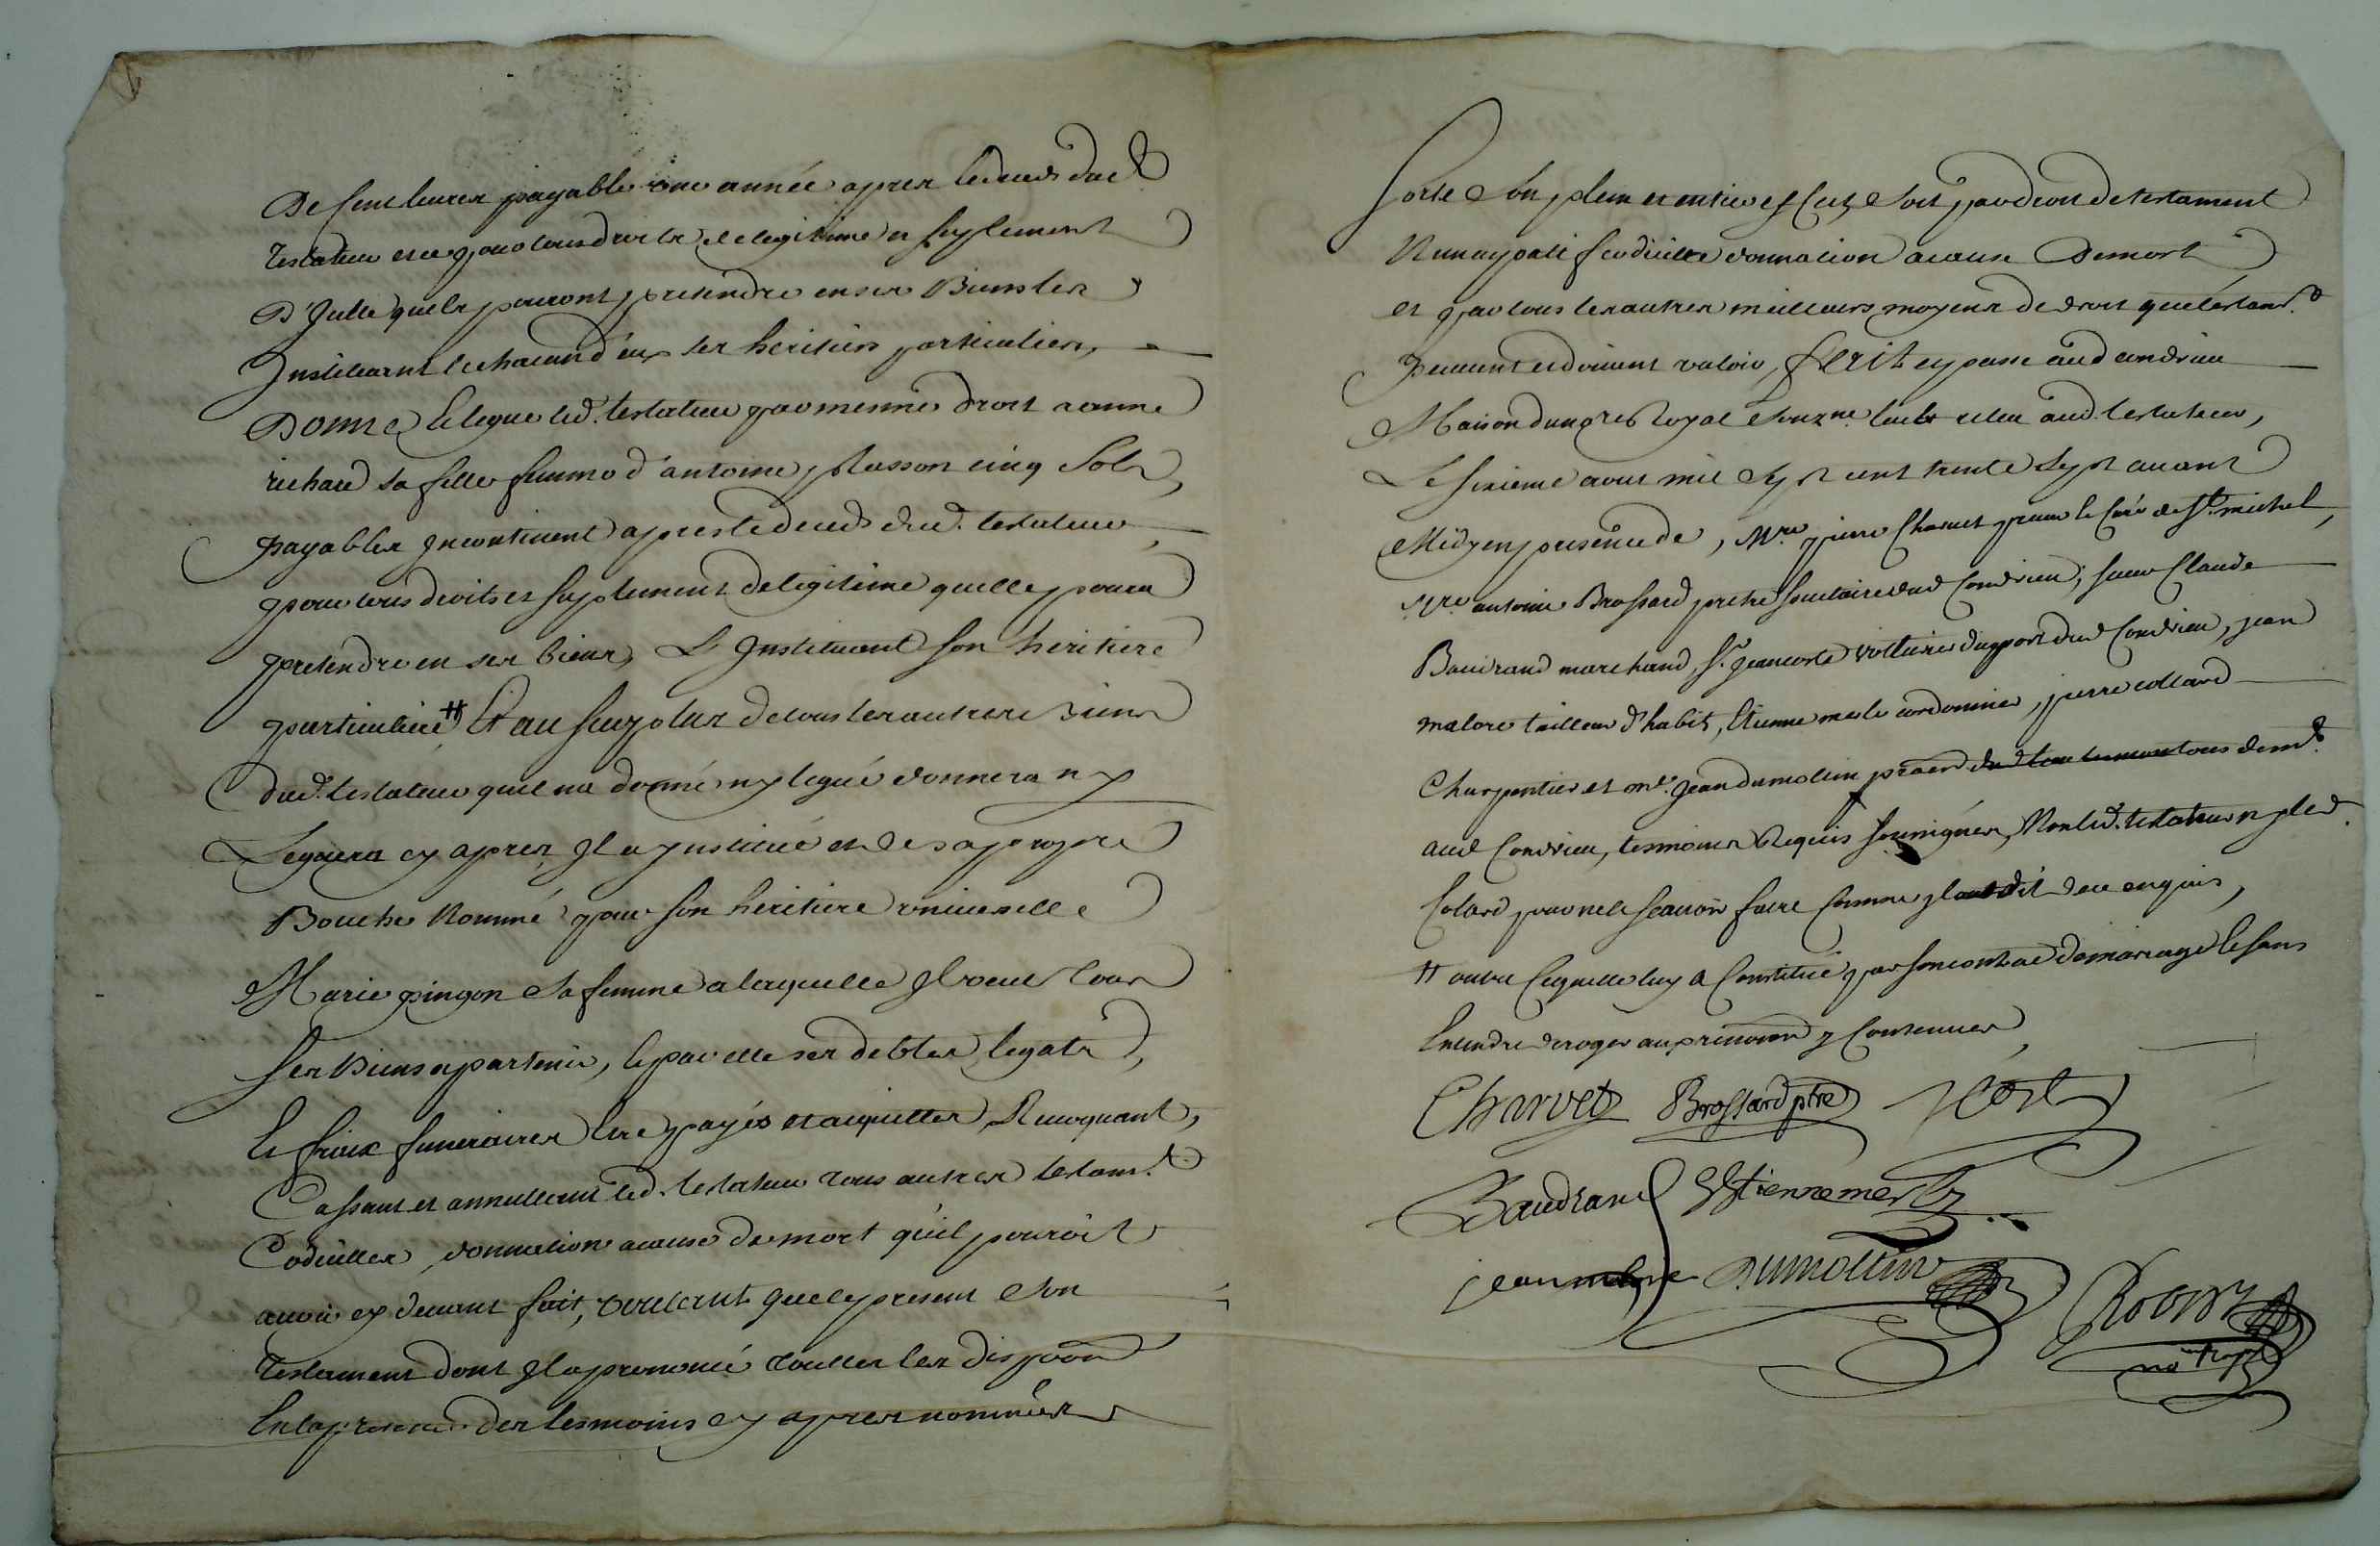 De Cent livres payable une année apres le deceds dud
testateur et ce pour tous droits de legitime et suplement
D'Icelle quels pouront pretendre en ses Biens les
Instituant le chacund d'eux ses heritiers particuliers,
Donne & legue led. testateur par mesme droit a anne
richard sa fille femme d'antoine plasson cinq Sols,
payables Incontinent apres le deceds dud. testateur,
pour tous droits et suplement de legitime quelle poura
pretendre en ses biens, L'Instituant son heritiere
particuliere ⧺ Et au surplus de tous les autres biens
dud. testateur quil na donné ny legué donnera ny
Leguera cy apres Il a Institué et de sa propre
Bouche Nommé pour son heritiere universelle
Marie pingon sa femme a laquelle Il veut tous
ses Biens apartenir, & par elle ses debtes, legats,
& fraix funeraires être payés et aquittes, Revoquant,
Cassant et annullant led. testateur tous autres testamt.
Codicilles, donnation a cause de mort qu'il pouroit
avoir cy devant fait, voulant que le present son
testament dont Il a prononcé touttes les dispoon
En la presence des tesmoins cy apres nommés
sorte son plein et entier effect, & soit par droit de testament
Nuncupatif codicille donnation a cause De mort
et par tous les autres meilleurs moyens de droit que testamt.
peuvent et doivent valoir, fait et passé aud condrieu
Maison du nore Royal sousne. leu & releu aud. testateur,
Le sixieme aout mil sept cent trente sept avant
Midy en presence de, Mre pierre Charvet pretre & Curé de St. michel,
Mre antoine Brossard pretre societaire dud Condrieu, sieur Claude
Baudrand marchand, Sr. Jean coste voiturier du port dud Condrieu, jean
malore tailleur d'habit, Etienne mesle cordonnier, pierre collard
Charpentier et me. Jean dumollin praen tous demt.
aud Condrieu, tesmoins Requis sousignés, Non led. testateur ny led
Colard pour ne le scavoir faire comme Il ont dit de ce enquis,
⧺ outre ce quelle luy a Constitué par son contrac de mariage & sans
Entendre deroger au precipu y Contenues,
Charvet Brossard ptre J Coste
Baudrand Estienne mesle
jean malore Dumollin
Robin
nore Royal